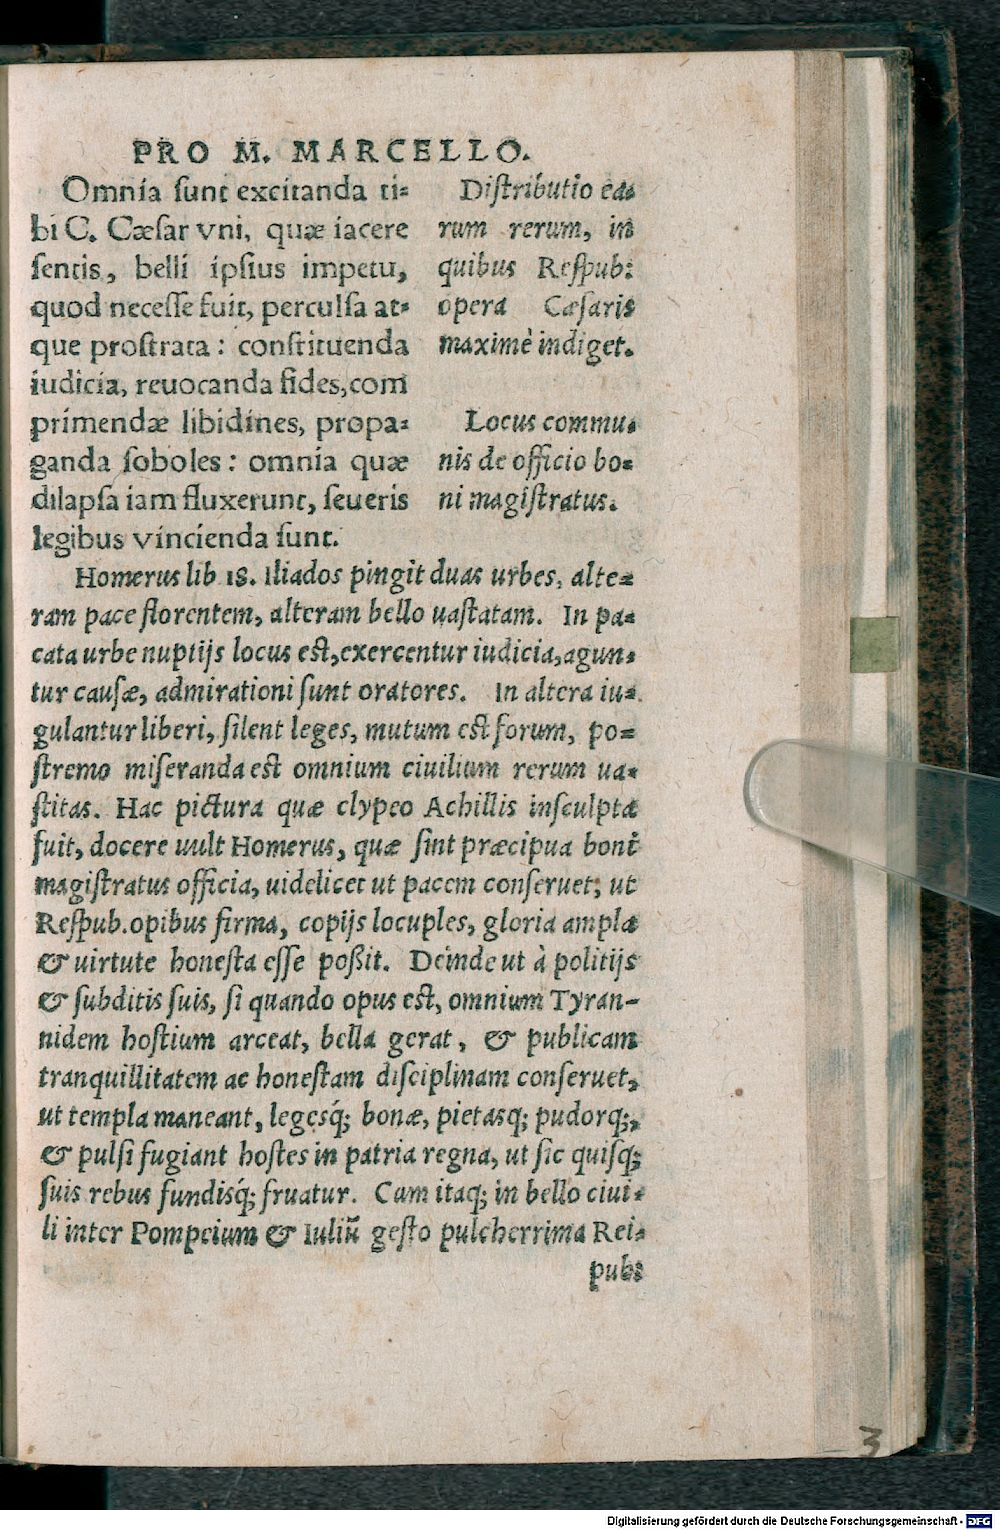 PRO M. MARCELLO.
Omnia sunt excitanda ti-
bi C. Cæsar vni, quæ iacere
sentis, belli ipsius impetu,
quod necesse fuit, perculsa at-
que prostrata: constituenda
iudicia, reuocanda fides, com
primendæ libidines, propa-
ganda soboles: omnia quæ
dilapsa iam fluxerunt, seueris
legibus vincienda sunt.
Distributio ea-
rum rerum, in
quibus Respub:
opera Cæsaris
maximè indiget.
Locus commu-
nis de officio bo-
ni magistratus.
Homerus lib 18. Iliados pingit duas urbes, alte-
ram pace florentem, alteram bello uastatam. In pa-
cata urbe nuptijs locus est, exercentur iudicia, agun-
tur causæ, admirationi sunt oratores. In altera iu-
gulantur liberi, silent leges, mutum est forum, po-
stremo miseranda est omnium ciuilium rerum ua-
stitas. Hac pictura quæ clypeo Achillis insculpta
fuit, docere uult Homerus, quæ sint præcipua boni
magistratus officia, uidelicet ut pacem conseruet, ut
Respub. opibus firma, copijs locuples, gloria ampla
& uirtute honesta esse poßit. Deinde ut à politijs
& subditis suis, si quando opus est, omnium Tyran-
nidem hostium arceat, bella gerat, & publicam
tranquillitatem ac honestam disciplinam conseruet,
ut templa maneant, legesq́; bonæ, pietasq; pudorq;,
& pulsi fugiant hostes in patria regna, ut sic quisq;
suis rebus fundisq́; fruatur. Cum itaq; in bello ciui-
li inter Pompeium & Iuliū gesto pulcherrima Rei-
pub:
3
Digitalisierung gefördert durch die Deutsche Forschungsgemeinschaft - DFG